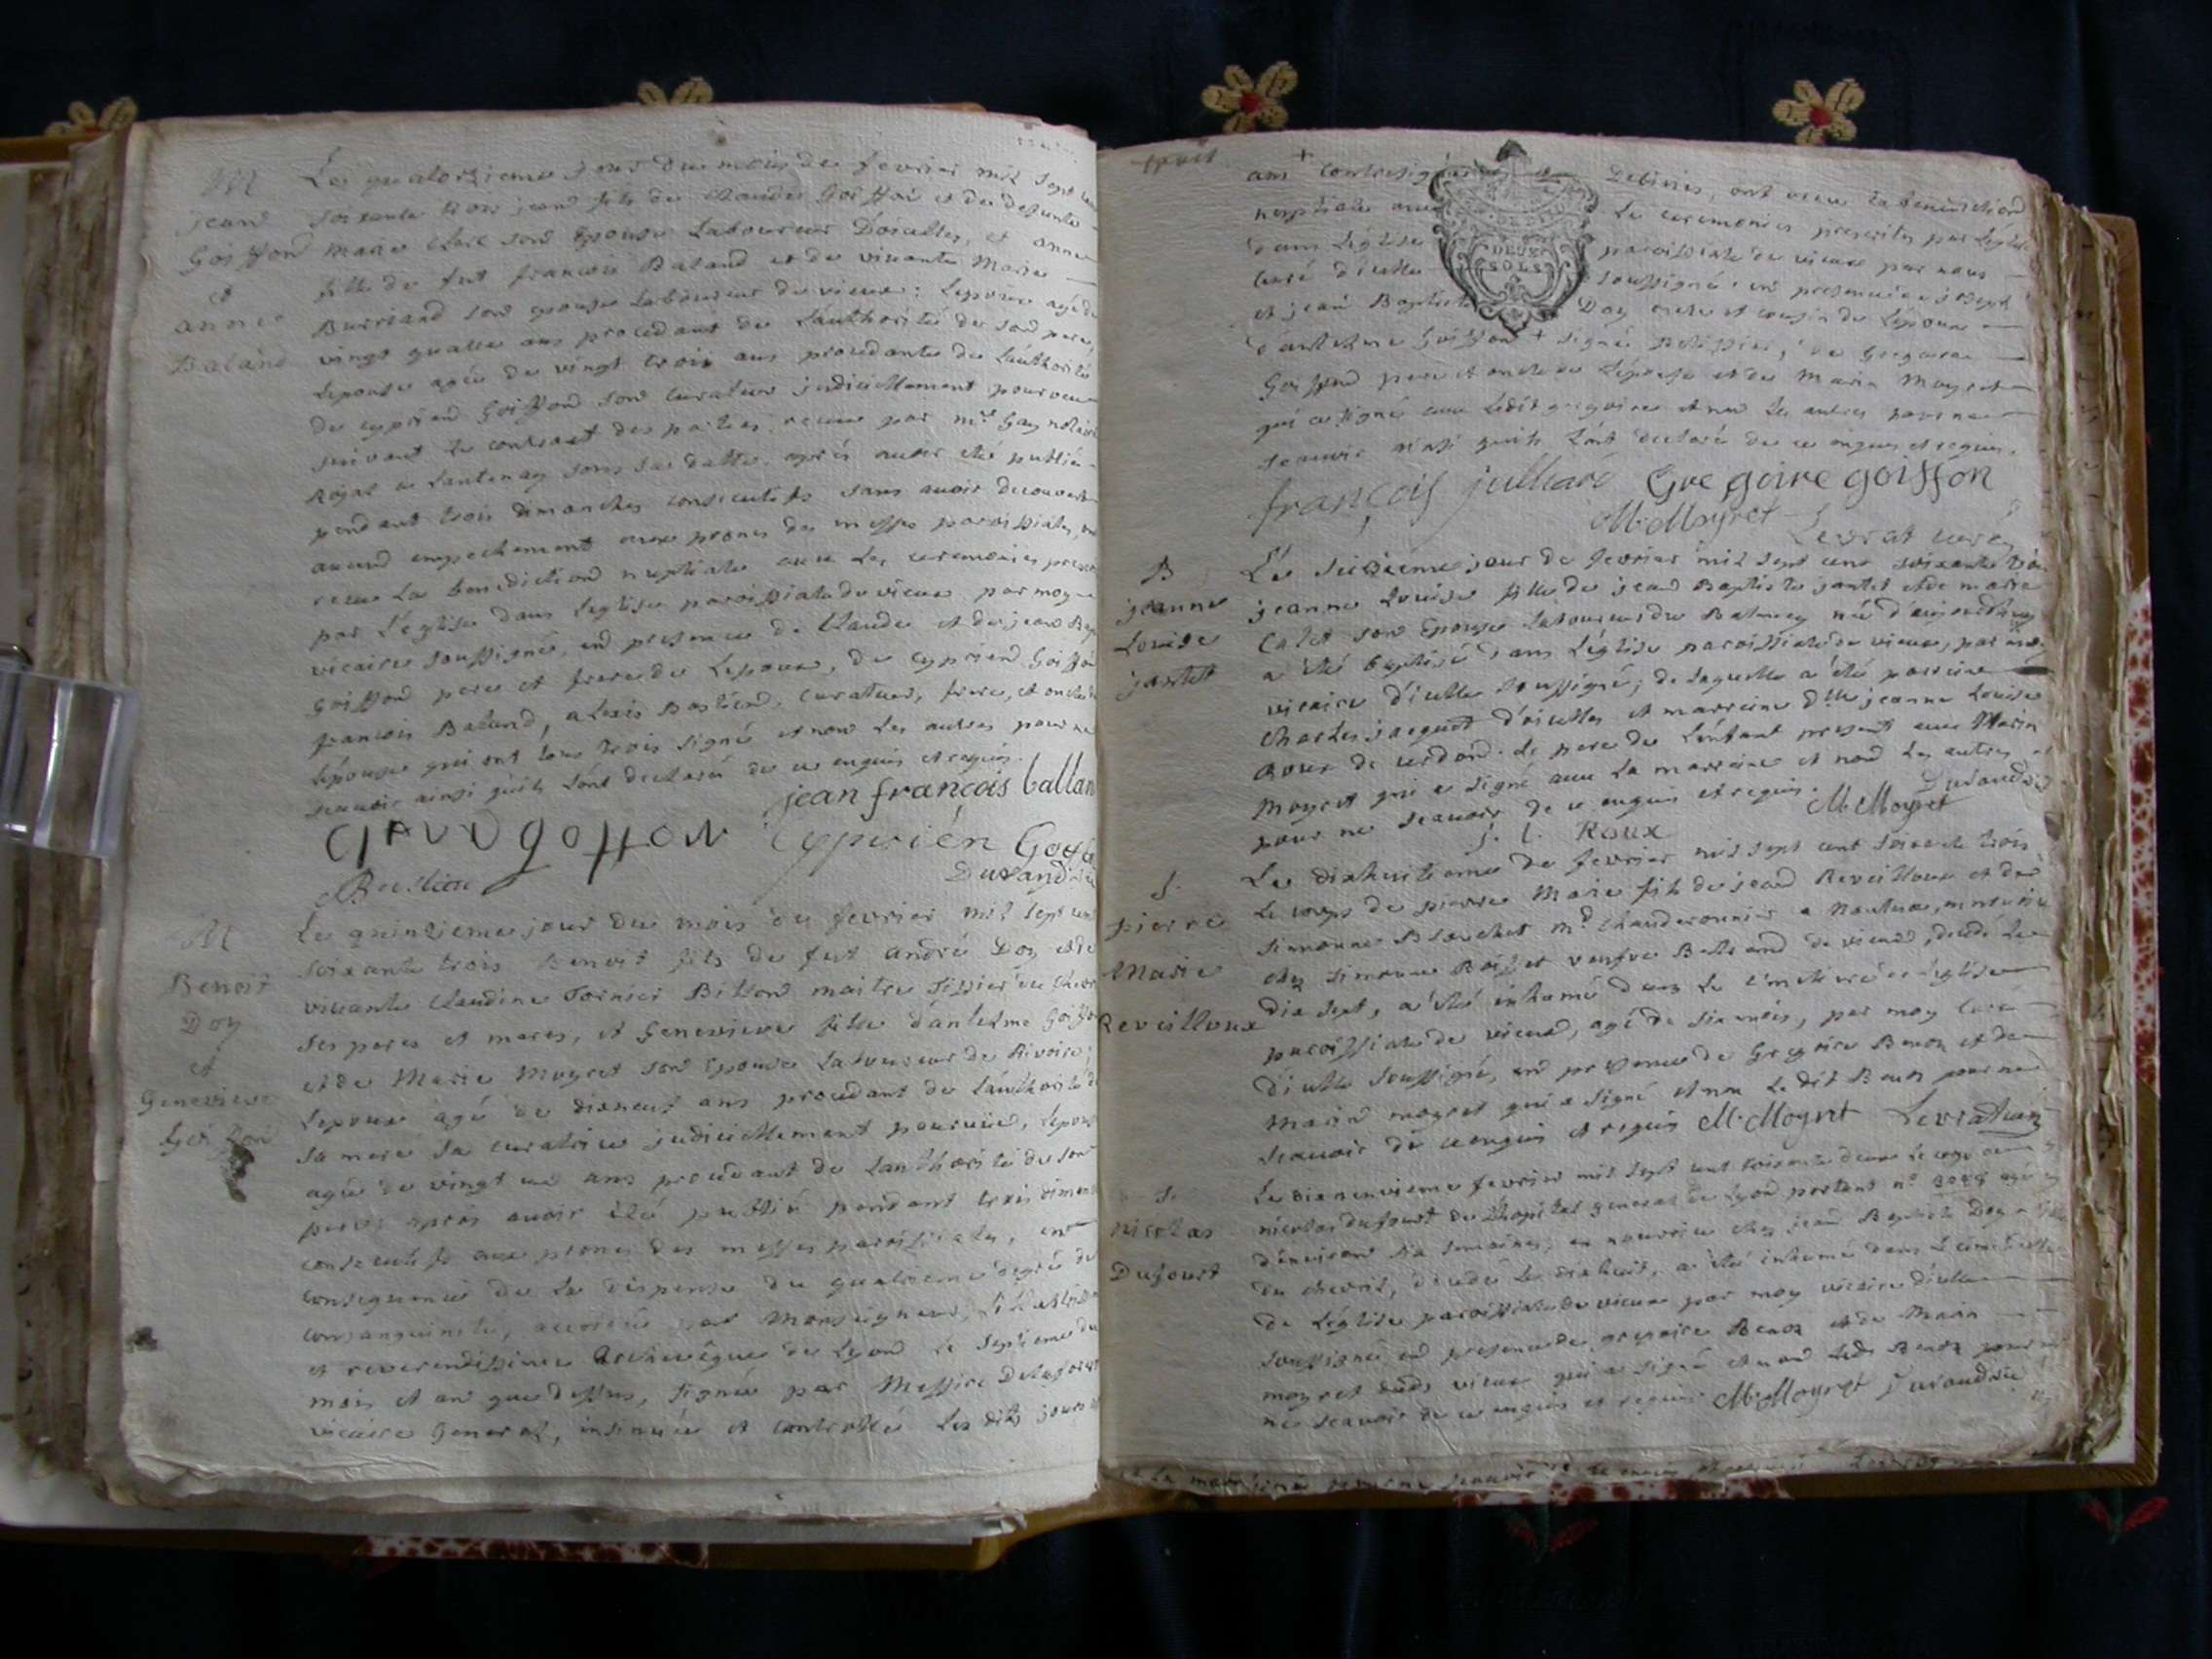 M
jean
Goiffon
et
anne
Baland
Le quatorzieme jour du mois de fevrier mil sept cent
soixante trois jean fils de Claude Goiffon et de defunte
Marie Clerc son Epouse Laboureur D'oisellas, et anne
fille de feu francois Baland et de vivante Marie
Burriand son epouse Laboureur de vieux; Lepoux agé de
vingt quatre ans procedant de Lauthorité de son pere,
Lepouse agée de vingt trois ans procedante de Lauthorité
de cyprien Goiffon son curateur judiciellement pourveu
suivant le contract des parties, receu par mre Gay notaire
Royal a Lantenay sous sa datte, aprés avoir été publiés
pendant trois dimanches consecutifs sans avoir decouvert
aucund empechement aux prones des messes paroissiales, ont
receu La benediction nuptiale avec Les ceremonies prescrites
par L'église dans L'eglise paroissiale de vieux par moy
vicaire soussigné, en presence de Claude et de jean Bap
Goiffon pere et frere de Lepoux, de cyprien Goiffon
francois Baland, alexis Bastiand, curateur, frere, et oncle de
Lépouse qui ont tous trois signé et non Les autres pour ne
scavoir ainsi qu'ils L'ont declaré de ce enquis et requis.
jean françois ballan
Cyprién Goiff
Bastian
Durand
M
Benoit
Doy
et
Genevieve
Goiffon
Le quinzieme jour du mois de fevrier mil sept cent
soixante trois Benoit fils de feu andré Doy et de
vivante Claudine Tornier Billon maitre Tissier de Chevril
ses peres et meres, et Genevieve fille d'antelme Goiffon
et de Marie Moyret son Epouse Laboureur de Rivoire;
Lepoux agé de dixneuf ans procedant de Lauthorité de
sa mere sa curatrice judiciellement pourvüe, Lepouse
agée de vingt un ans procedant de Lauthorité de son
pere; apres avoir été publié pendant trois dimanches
consecutifs aux prones des messes paroissiales, en
consequence de La dispense du quatrieme degré de
consanguinité, accordée par Monseigneur, L'illustrissime
et reverendissime Archevêque de Lyon Le septieme du
mois et an que dessus, signée par Messire Delaforest
vicaire General, insinuée et controllée Les dits jours et
an + contresigné Delivier, ont receu La benediction
nuptiale avec Les ceremonies prescrites par L'eglise
dans L'eglise paroissiale de vieux par nous
curé d'icelle soussigné, en presence de joseph
et jean Baptiste Doy oncle et cousin de L'epoux
DEUX
SOLS
d'antelme Goiffon + signé, de Gregoire
Goiffon pere et oncle de L'épouse et de Marin Moyret
qui a signé avec Ledit gregoire et non Les autres pour ne
scavoir ainsi quils L'ont declaré de ce enquis et requis.
françois julliard Gregoire goiffon
M. Moyret Levrat curé
B
jeanne
Louise
jantet
Le seizieme jour de fevrier mil sept cent soixante trois
jeanne Louise fille de jean Baptiste jantet et de marie
Calet son Epouse Laboureur du Balmey né d'aujourdhuy
a été baptisé dans L'église paroissiale de vieux, par moy
vicaire d'icelle soussigné; de Laquelle a été parrain
Charles jaquet d'oisellas et marraine dlle jeanne Louise
Roux de cerdon. Le pere de L'enfant present avec Marin
Moyret qui a signé avec La marraine et non Les autres
pour ne scavoir de ce enquis et requis.
j. l. Roux M. Moyret
S.
pierre
Marie
Reveilloux
Le dixhuitieme de fevrier mil sept cent soixante trois
Le corps de pierre Marie fils de jean Reveilloux et de
simonne Blanchet md Chauderonnier a Nantua, en nourrice
chez simonne Boisset veufve Bertrand de vieux, decedé Le
dix sept, a été inhumé dans Le cimetiere de L'église
paroissiale de vieux, agé de six mois, par moy curé
d'icelle soussigné, en presence de Gregoire Benoz et de
Marin moyret qui a signé et non Le dit Benoz pour ne
scavoir de ce enquis et requis M. Moyret Levrat curé
S.
Nicolas
Dufourt
Le dixneuvieme fevrier mil sept cent soixante deux Le corps de
nicolas dufourt de L'hopital general de Lyon portant no
d'environ six semaines, en nourrice chez jean Baptiste Doy
du chevril, decedé Le dixhuit, a été inhumé dans Le cimetiere
de L'église paroissiale de vieux par moy vicaire d'icelle
soussigné, en presence de gregoire Benoz et de Marin
moyret dudt vieux qui a signé et non Ledt Benoz pour
ne scavoir de ce enquis et requis M. Moyret